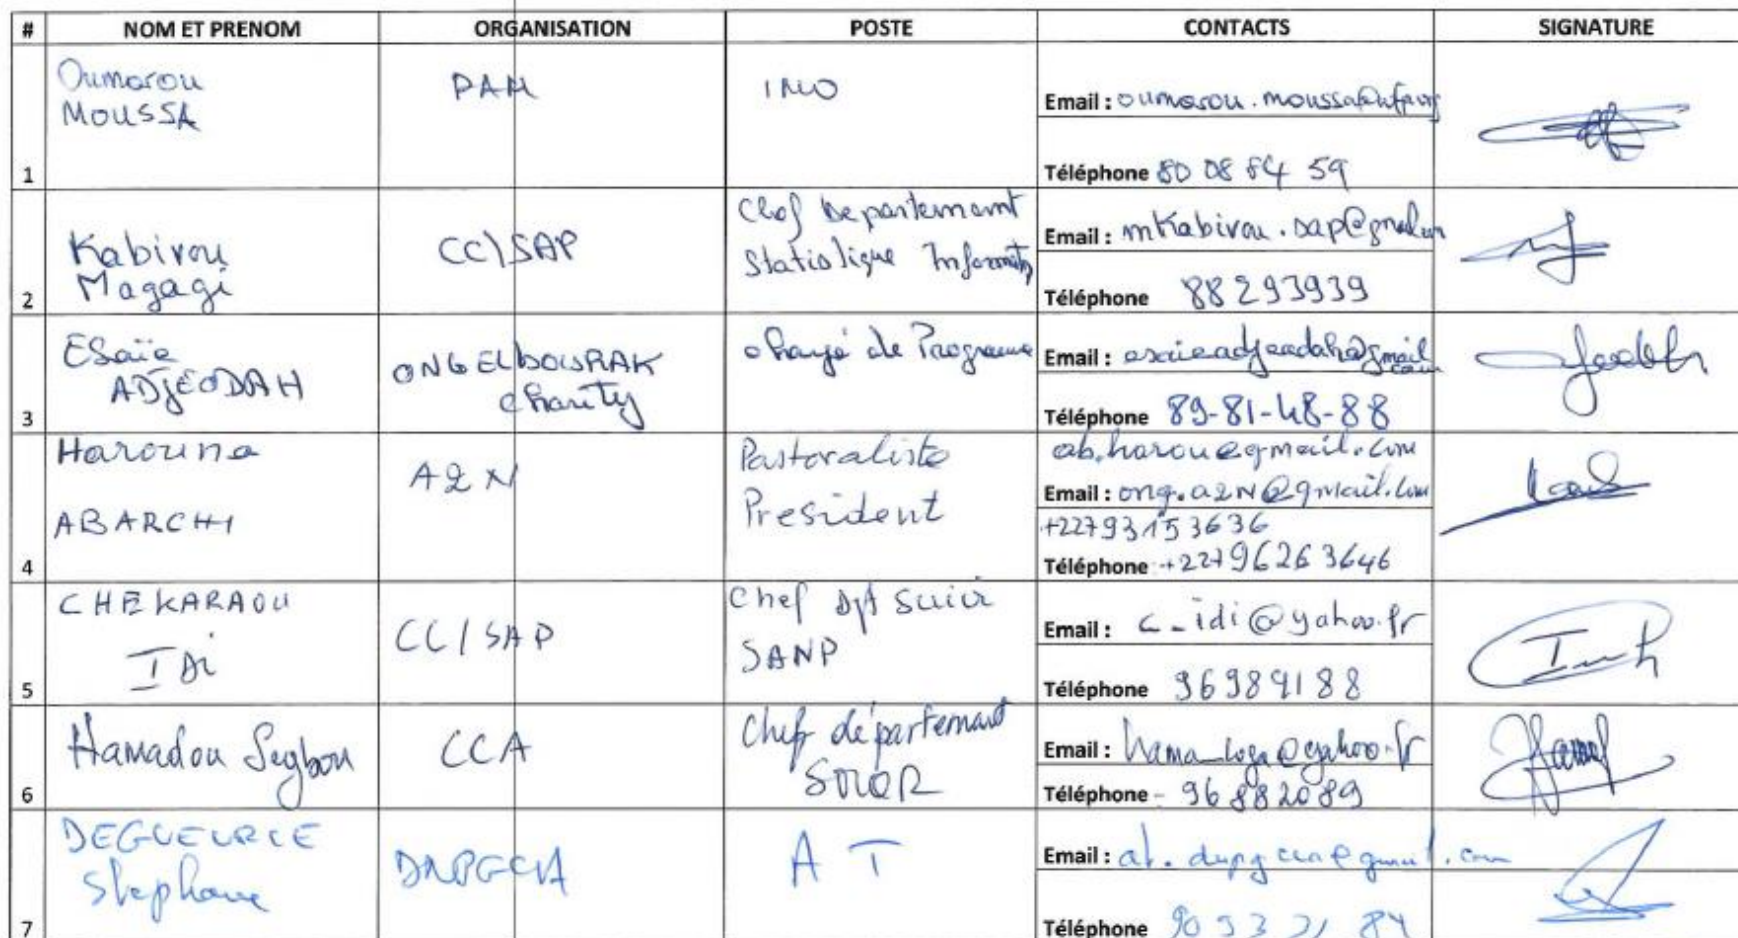 # NOM ET PRENOM ORGANISATION POSTE CONTACTS SIGNATURE
1 Oumarou MOUSSA PAM IMO Email : oumarou.moussa@wfp.org
Téléphone 80 08 84 59
2 Kabirou Magagi CC/SAP Chef Departement Statistique Email : mkabirou.sap@gmail.com
Téléphone 88293939
3 Esaïe ADJEODAH ONG ELBOURAK Charity chargé de Programme Email : esaieadjeodah@gmail.com
Téléphone 89-81-48-88
4 Harouna ABARCHI A2N Pastoraliste President ab.harou@gmail.com
Email : ong.a2N@gmail.com
+22793153636
Téléphone +22796263646
5 CHEKARAOU IDI CC/SAP Chef Dpt Suivi SANP Email : c_idi@yahoo.fr
Téléphone 96989188
6 Hamadou Seybou CCA Chef département Email :
Téléphone - 96882089
7 Stephane DNPGCA A T Email :
Téléphone